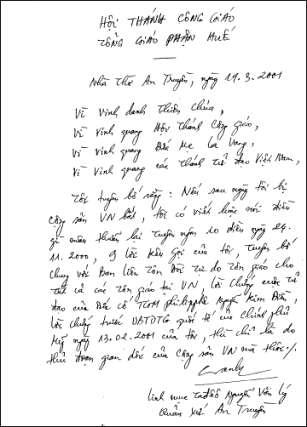 HỘI THÁNH CÔNG GIÁO
TỔNG GIÁO PHẬN HUẾ
Nhà Thờ An Truyền, ngày 19.3.2001
Vì vinh danh Thiên Chúa,
Vì vinh quang Hội Thánh Công giáo,
Vì vinh quang Đức Mẹ La Vang,
Vì vinh quang các thánh tử đạo Việt Nam,
Tôi tuyên bố rằng: Nếu sau ngày tôi bị
Cộng sản VN bắt, tôi có viết hoặc nói điều
gì mâu thuẫn lời tuyên ngôn 10 điểm ngày 24.
11.2000, 9 lời kêu gọi của tôi, tuyên bố
chung với Ban liên tôn đòi tự do tôn giáo cho
tất cả các tôn giáo tại VN, lời chứng cuộc tử
đạo của Đức cố TGM Philipphê Nguyễn Kim Điền,
lời chứng trước UBTDTG quốc tế của Chính phủ
Mỹ ngày 13.02.2001 của tôi, thì chỉ là do
thủ đoạn gian dối của Cộng sản VN mà thôi./.
Linh mục Tađêô Nguyễn Văn Lý
Quản xứ An Truyền